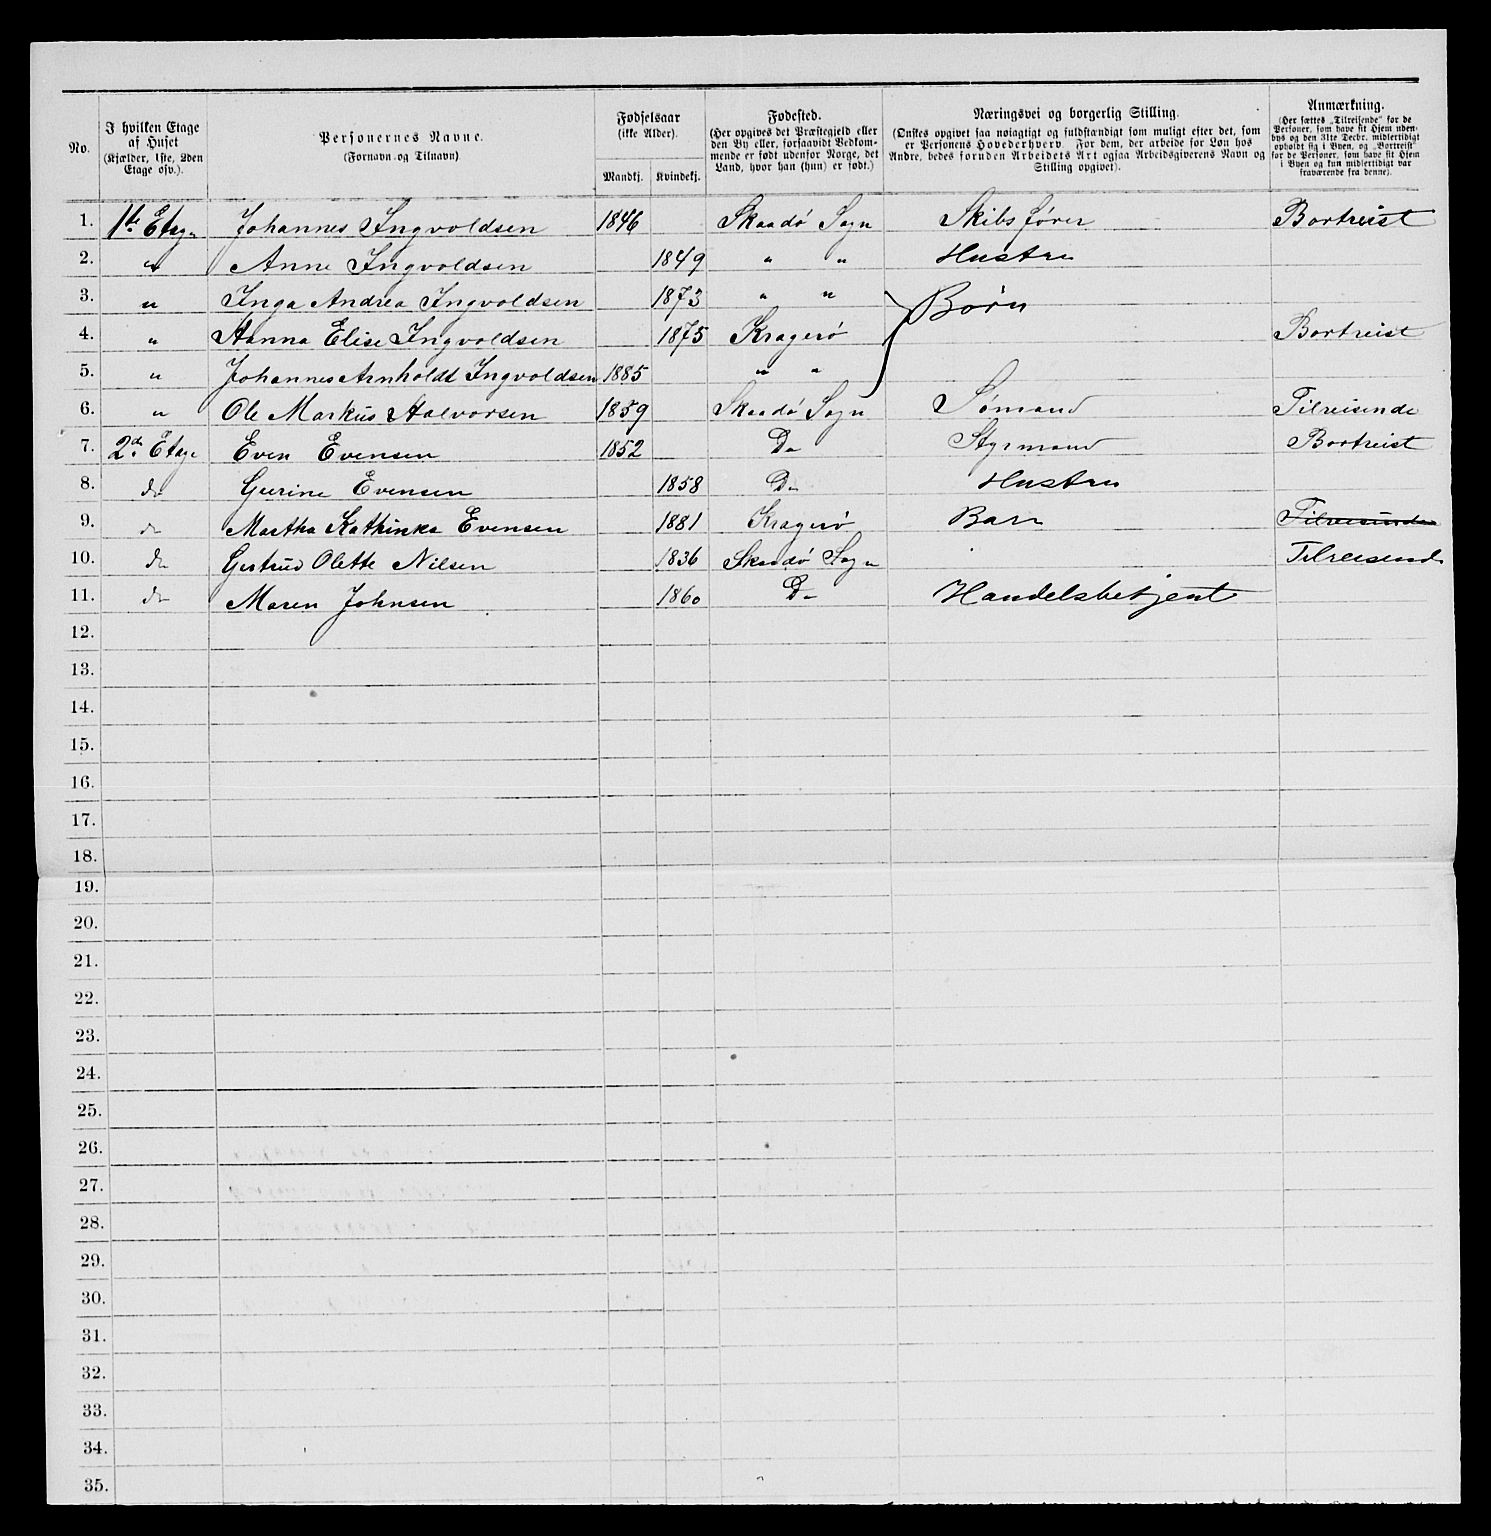 No.	I hvilken Etage af Huset (Kjælder, 1ste, 2den Etage osv.).	Personernes Navne. (Fornavn og Tilnavn)	Fødselsaar (ikke Alder). Mandkj.	Kvindekj.	Fødested. (Her opgives det Præstegjeld eller den By eller, forsaavidt Vedkommende er født udenfor Norge, det Land, hvor han (hun) er født.)	Næringsvei og borgerlig Stilling. (Ønskes opgivet saa nøiagtigt og fuldstændigt som muligt efter det, som er Personens Hovederhverv. For dem, der arbeide for Løn hos Andre, bedes foruden Arbeidets Art ogsaa Arbeidsgiverens Navn og Stilling opgivet).	Anmærkning. (Her sættes „Tilreisende“ for de Personer, som have sit Hjem udenbys og den 31te Decbr. midlertidigt opholdt sig i Byen, og „Bortreist“ for de Personer, som have sit Hjem i Byen og kun midlertidigt var fraværende fra denne).
1.	1te Etage	Johannes Ingvoldsen	1846		Skaadø Sogn	Skibsfører	Bortreist
2.	"	Anne Ingvoldsen		1849	" "	Hustru
3.	"	Inga Andrea Ingvoldsen		1873	" "	Børn
4.	"	Hanna Elise Ingvoldsen		1875	Kragerø		Bortreist
5.	"	Johannes Arnholdt Ingvoldsen	1885		" "
6.	"	Ole Markus Halvorsen	1859		Skaadø Sogn	Sømand	Tilreisende
7.	2d. Etage	Even Evensen	1852		Do	Styrmand	Bortreist
8.	do	Gurine Evensen		1858	Do	Hustru
9.	do	Martha Kathinka Evensen		1881	Kragerø	Barn	Tilreisende
10.	do	Gertrud Olette Nilsen		1836	Skaadø Sogn		Tilreisende
11.	do	Maren Johnsen		1860	Do	Handelsbetjent
12.
13.
14.
15.
16.
17.
18.
19.
20.
21.
22.
23.
24.
25.
26.
27.
28.
29.
30.
31.
32.
33.
34.
35.